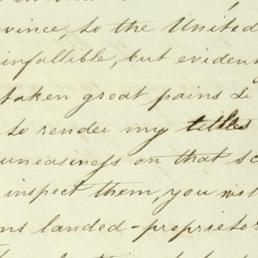 vince, to the United
infallible, but evident
taken great pains
to render my titles
uneasiness on that
inspect them, you
landed-proprietor